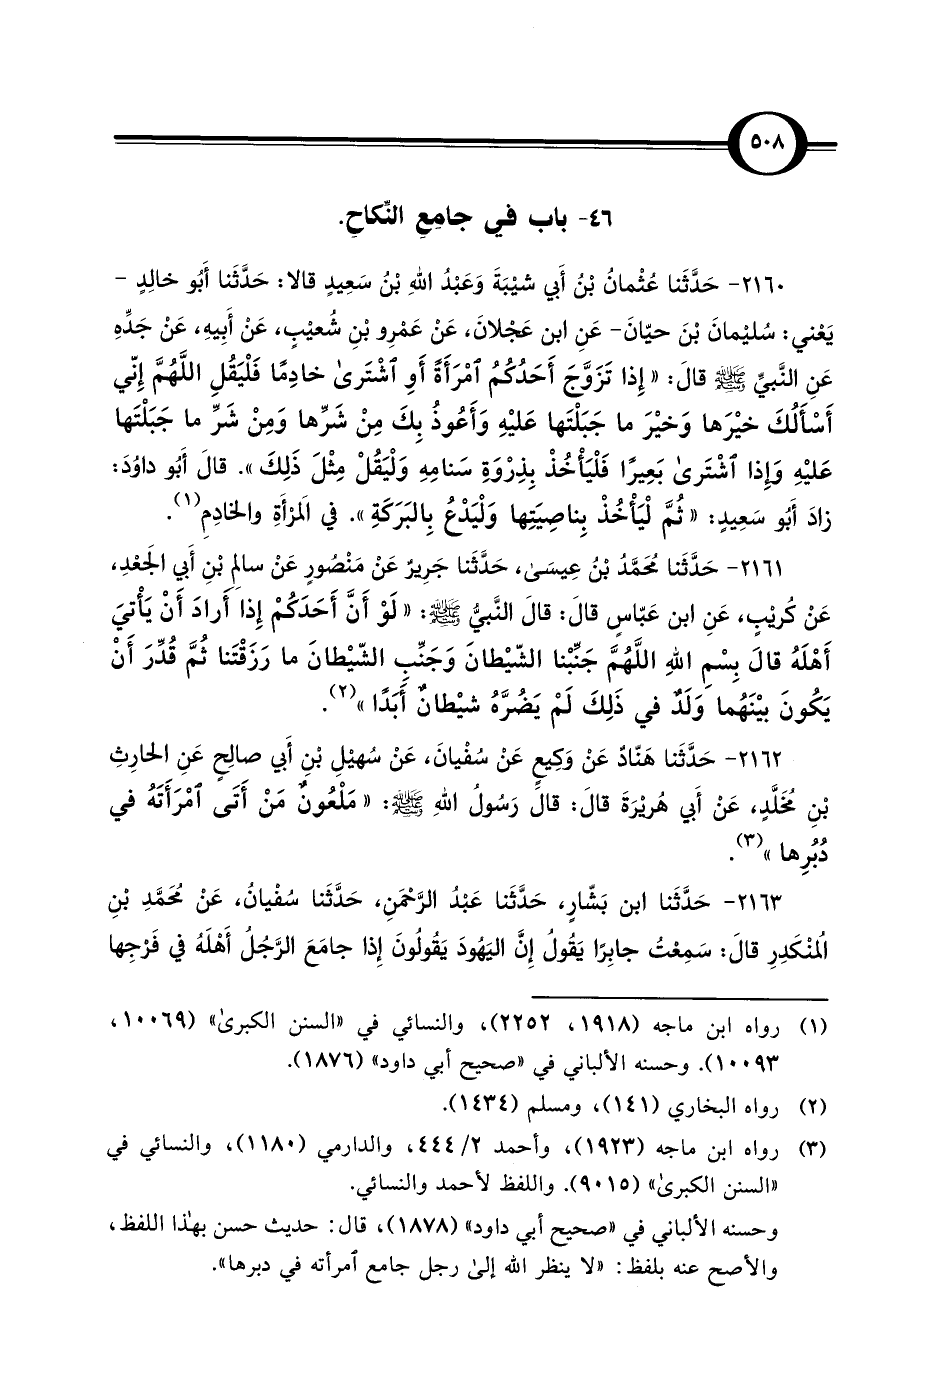 ٥٠٨
٤٦- باب في جامِعِ النِّكاحِ.
٢١٦٠- حَدَّثَنا عُثْمانُ بْنُ أَبي شَيْبَةَ وَعَبْدُ اللهِ بْنُ سَعِيدٍ قالا: حَدَّثَنا أَبُو خالِدٍ -
يَعْني: سُلَيْمانَ بْنَ حيّانَ- عَنِ ابن عَجْلانَ، عَنْ عَمْرِو بْنِ شُعيْبٍ، عَنْ أَبِيهِ، عَنْ جَدِّهِ
عَنِ النَّبيِّ ﷺ قالَ: « إِذا تَزَوَّجَ أَحَدُكُمُ ٱمْرَأَةً أَوِ ٱشْتَرىٰ خادِمًا فَلْيَقُلِ اللَّهُمَّ إِنّي
أَسْأَلُكَ خَيْرَها وَخَيْرَ ما جَبَلْتَها عَلَيْهِ وَأَعُوذُ بِكَ مِنْ شَرِّها وَمِنْ شَرِّ ما جَبَلْتَها
عَلَيْهِ وَإِذا ٱشْتَرىٰ بَعِيرًا فَلْيَأْخُذْ بِذِرْوَةِ سَنامِهِ وَلْيَقُلْ مِثْلَ ذَلِكَ ». قالَ أَبُو داوُدَ:
زادَ أَبُو سَعِيدٍ: « ثُمَّ لْيَأْخُذْ بِناصِيَتِها وَلْيَدْعُ بِالبَرَكَةِ ». في المَرْأَةِ والخادِمِ(١).
٢١٦١- حَدَّثَنا مُحَمَّدُ بْنُ عِيسَى، حَدَّثَنا جَرِيرٌ عَنْ مَنْصُورٍ عَنْ سالِمِ بْنِ أَبي الجَعْدِ،
عَنْ كُرَيْبٍ، عَنِ ابن عَبّاسٍ قالَ: قالَ النَّبيُّ ﷺ: « لَوْ أَنَّ أَحَدَكُمْ إِذا أَرادَ أَنْ يَأْتيَ
أَهْلَهُ قالَ بِسْمِ اللهِ اللَّهُمَّ جَنِّبْنا الشَّيْطانَ وَجَنِّبِ الشَّيْطانَ ما رَزَقْتَنا ثُمَّ قُدِّرَ أَنْ
يَكُونَ بَيْنَهُما وَلَدٌ في ذَلِكَ لَمْ يَضُرَّهُ شَيْطانٌ أَبَدًا »(٢).
٢١٦٢- حَدَّثَنا هَنّادٌ عَنْ وَكِيعٍ عَنْ سُفْيانَ، عَنْ سُهَيْلِ بْنِ أَبي صالِحٍ عَنِ الحارِثِ
بْنِ مُخَلَّدٍ، عَنْ أَبي هُرَيْرَةَ قالَ: قالَ رَسُولُ اللهِ ﷺ: « مَلْعُونٌ مَنْ أَتَى ٱمْرَأَتَهُ في
دُبُرِها »(٣).
٢١٦٣- حَدَّثَنا ابن بَشّارٍ، حَدَّثَنا عَبْدُ الرَّحْمَنِ، حَدَّثَنا سُفْيانُ، عَنْ مُحَمَّدِ بْنِ
المُنْكَدِرِ قالَ: سَمِعْتُ جابِرًا يَقُولُ إِنَّ اليَهُودَ يَقُولُونَ إِذا جامَعَ الرَّجُلُ أَهْلَهُ في فَرْجِها
(١) رواه ابن ماجه (١٩١٨، ٢٢٥٢)، والنسائي في «السنن الكبرىٰ» (١٠٠٦٩،
١٠٠٩٣). وحسنه الألباني في «صحيح أبي داود» (١٨٧٦).
(٢) رواه البخاري (١٤١)، ومسلم (١٤٣٤).
(٣) رواه ابن ماجه (١٩٢٣)، وأحمد ٢/ ٤٤٤، والدارمي (١١٨٠)، والنسائي في
«السنن الكبرىٰ» (٩٠١٥). واللفظ لأحمد والنسائي.
وحسنه الألباني في «صحيح أبي داود» (١٨٧٨)، قال: حديث حسن بهٰذا اللفظ،
والأصح عنه بلفظ: «لا ينظر الله إلىٰ رجل جامع ٱمرأته في دبرها».